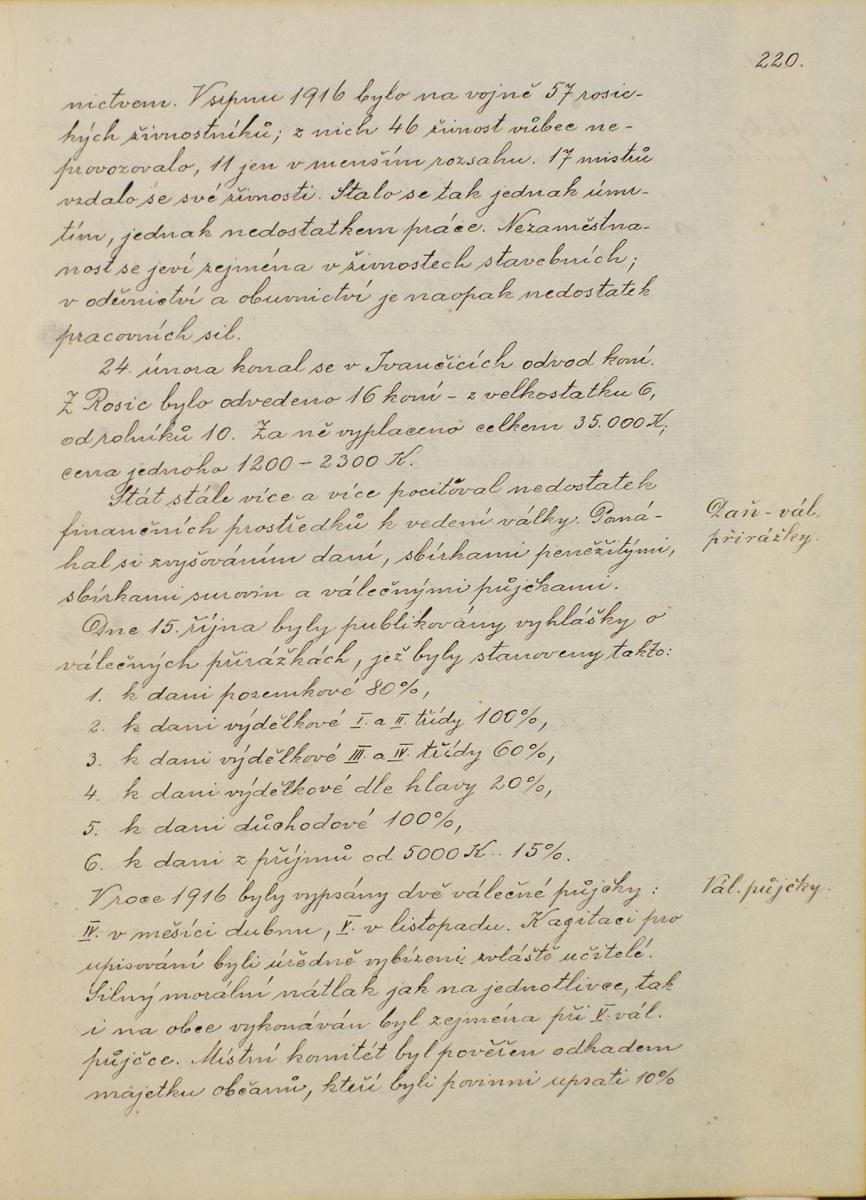 220.
nictvem. V srpnu 1916 bylo na vojně 57 rosic-
kých živnostníků; z nich 46 živnost vůbec ne-
provozovalo, 11 jen v menším rozsahu. 17 mistrů
vzdalo se své živnosti. Stalo se tak jednak úmr-
tím, jednak nedostatkem práce. Nezaměstna-
nost se jeví zejména v živnostech stavebních;
v oděvnictví a obuvnictví je naopak nedostatek
pracovních sil.
24. února konal se v Ivančicích odvod koní.
Z Rosic bylo odvedeno 16 koní - z velkostatku 6,
od rolníků 10. Za ně vyplaceno celkem 35.000 K,
cena jednoho 1200 - 2300 K.
Stát stále více a více pociťoval nedostatek
finančních prostředků k vedení války. Pomá-
hal si zvyšováním daní, sbírkami peněžitými,
sbírkami surovin a válečnými půjčkami.
Daň - vál.
přirážky.
Dne 15. října byly publikovány vyhlášky o
válečných přirážkách, jež byly stanoveny takto:
1. k dani pozemkové 80%,
2. k dani výdělkové I. a II. třídy 100%,
3. k dani výdělkové III. a IV. třídy 60%,
4. k dani výdělkové dle hlavy 20%,
5. k dani důchodové 100%,
6. k dani z příjmů od 5000 K .. 15%.
V roce 1916 byly vypsány dvě válečné půjčky:
Vál. půjčky.
IV. v měsíci dubnu, V. v listopadu. K agitaci pro
upisování byli úředně vybízeni zvláště učitelé.
Silný morální nátlak jak na jednotlivce, tak
i na obce vykonáván byl zejména při V. vál.
půjčce. Místní komitét byl pověřen odhadem
majetku občanů, kteří byli povinni upsati 10%